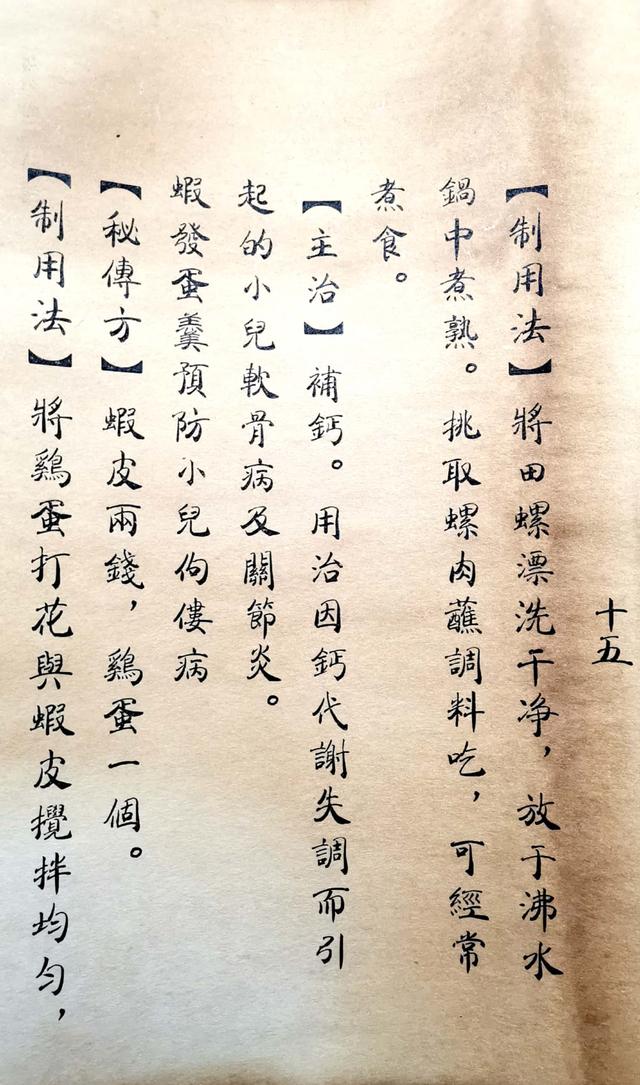 十五
【制用法】將田螺漂洗干净，放于沸水
鍋中煮熟。挑取螺肉蘸調料吃，可經常
煮食。
【主治】補鈣。用治因鈣代謝失調而引
起的小兒軟骨病及關節炎。
蝦發蛋羹預防小兒佝僂病
【秘傳方】蝦皮兩錢，鷄蛋一個。
【制用法】將鷄蛋打花與蝦皮攪拌均勻，